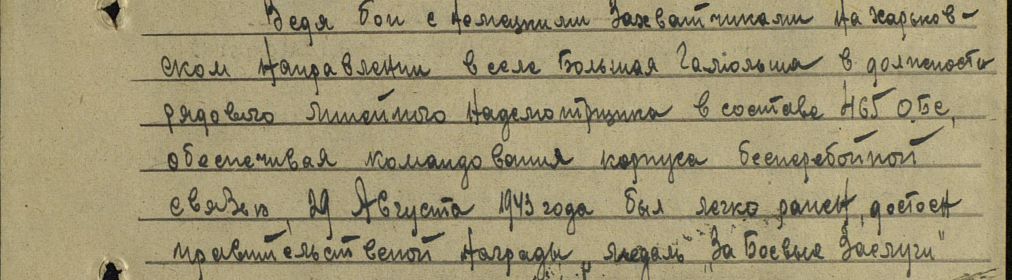 Ведя бои с немецкими захватчиками на харьков-
ском направлении в селе Большая Гаміольша в должности
рядового линейного надсмотрщика в составе 465 О.Бс,
обеспечивая командования корпуса бесперебойной
связью, 29 Августа 1943 года был легко ранен, достоен
правительственой награды медаль "За Боевые Заслуги"